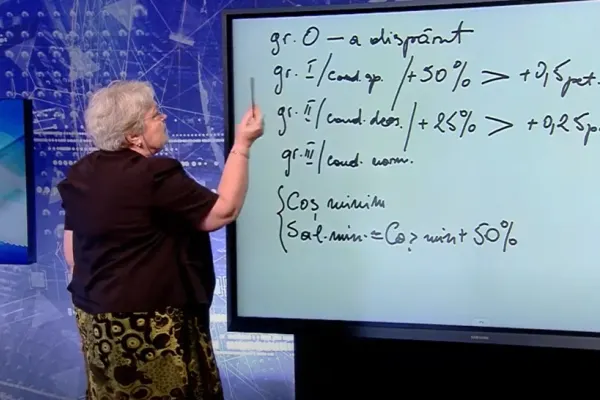 gr. O – a dispărut
gr. I / cond. sp. / +50% > +0,5 pct.
gr. II / cond. deos. / +25% > +0,25 p
gr. III / cond. norm.
Coș minim
Sal. min. = Coș min + 50%
SAMSUNG